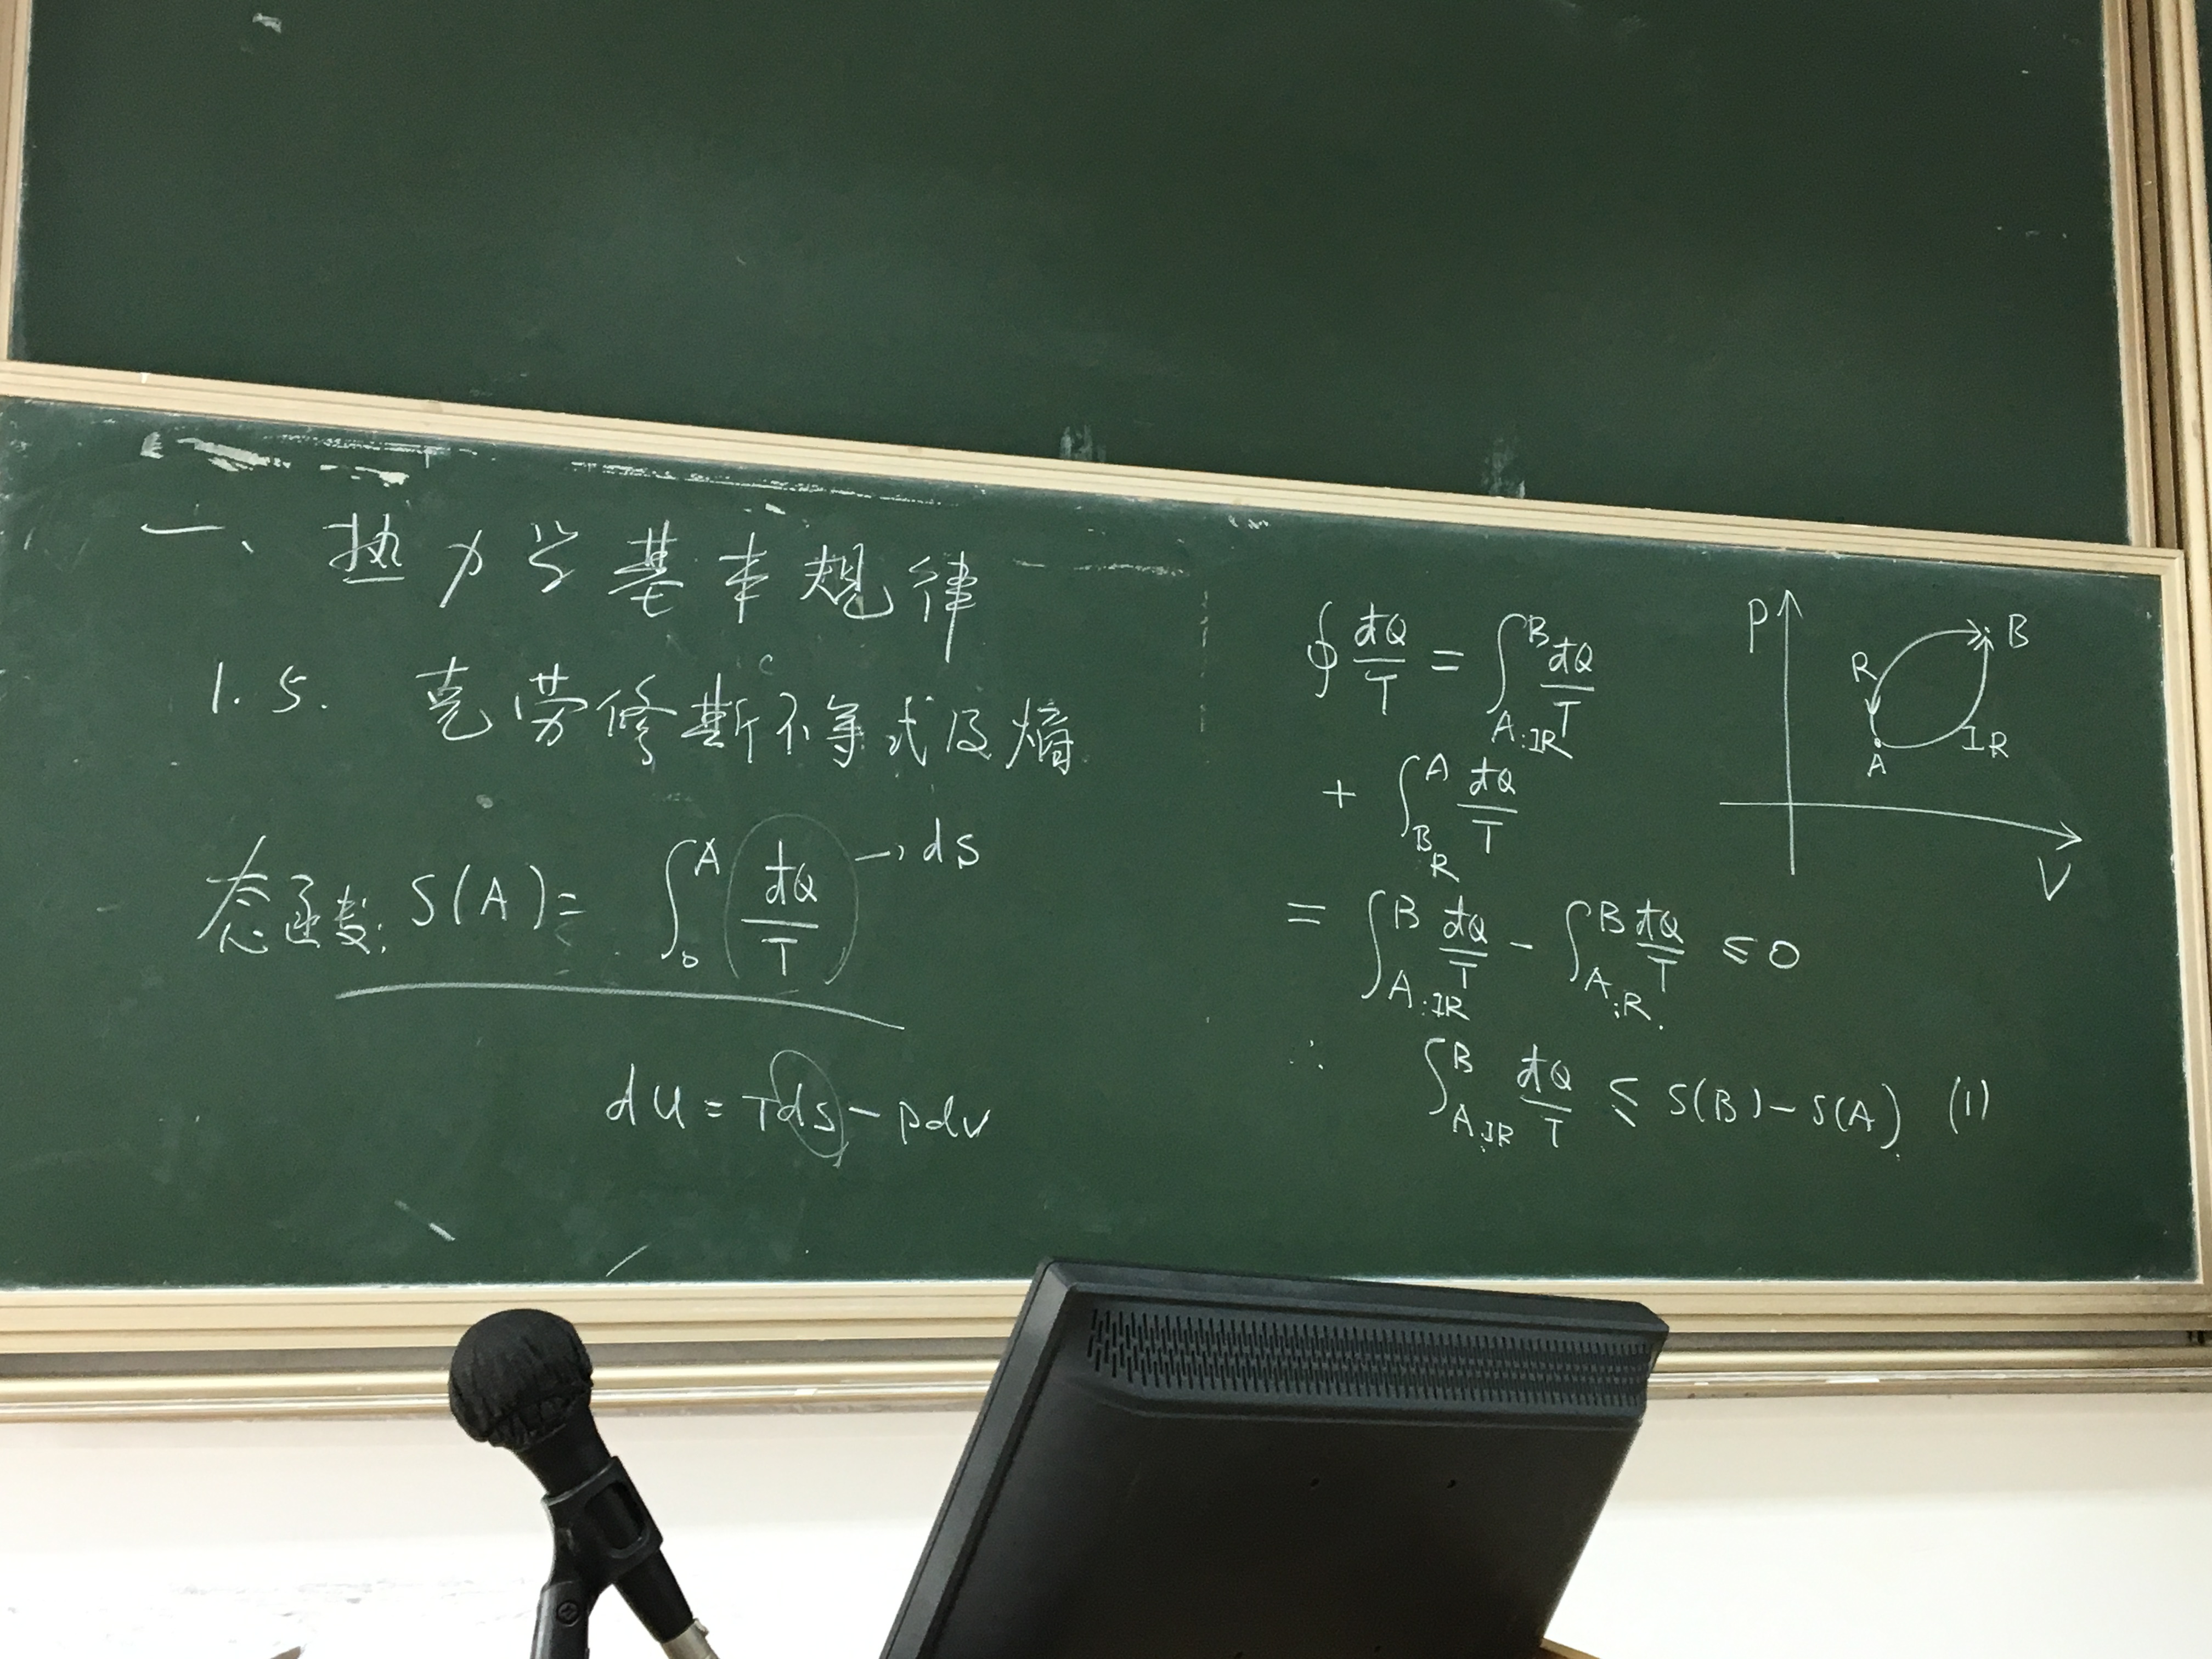 一、热力学基本规律
1.5. 克劳修斯不等式及熵
态函数: S(A) = ∫₀ᴬ đQ/T → dS
du = Tds - pdv
∮ đQ/T = ∫_{A:IR}^{B} đQ/T
+ ∫_{B R}^{A} đQ/T
= ∫_{A:IR}^{B} đQ/T - ∫_{A:R}^{B} đQ/T ≤ 0
∴ ∫_{A:IR}^{B} đQ/T ≤ S(B) - S(A) (1)
P
B
R
IR
A
V